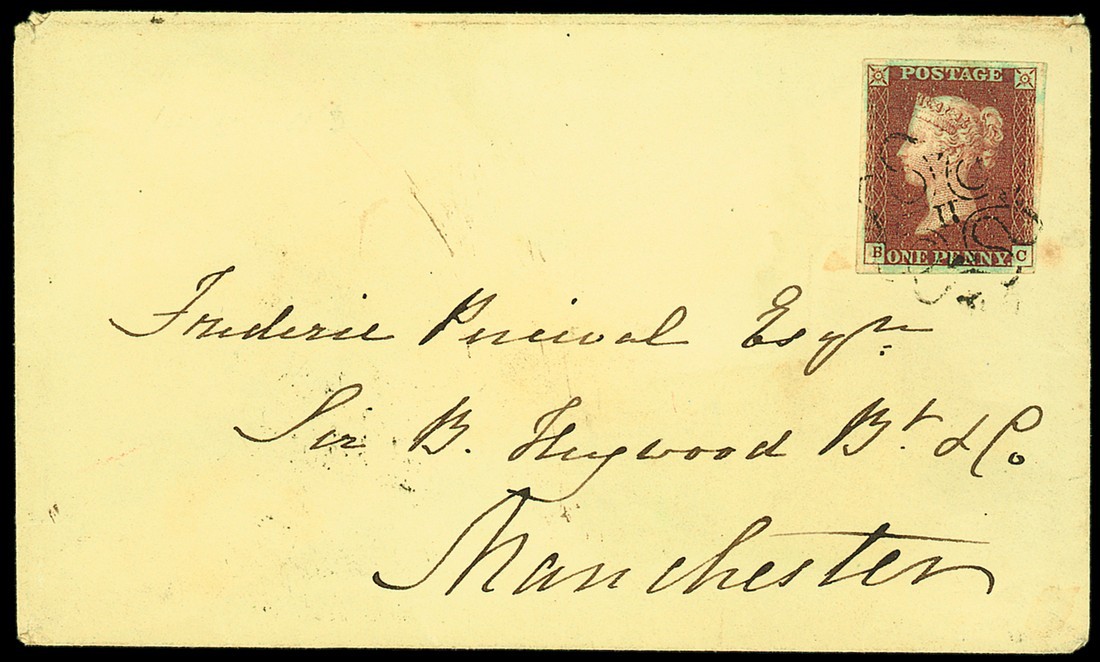 POSTAGE
11
B ONE PENNY. C
Frederic Percival Esqre
Sir B. Heywood Bt & Co.
Manchester